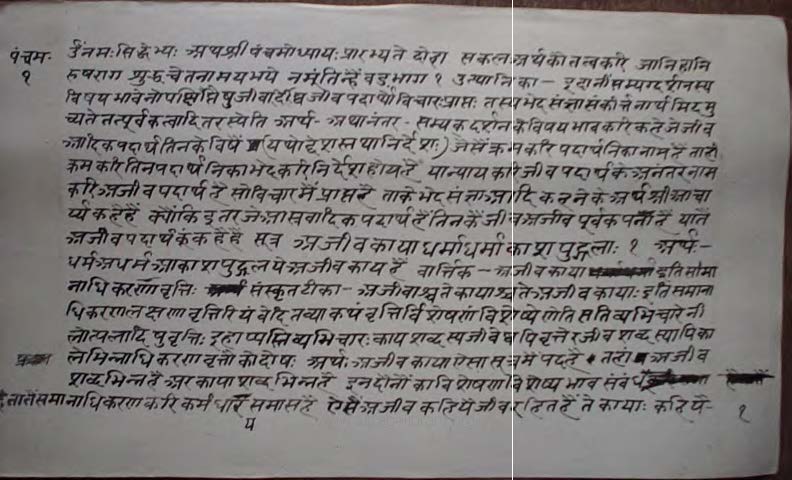 पंचमः ॐनमःसिद्धेभ्यः अथश्री पंचमोध्यायःप्रारभ्यते दोहा सकलअर्थकोतत्वकरि जानिहानि
१ रुषराग शुद्धचेतनामयभये नमूंतिन्हें वडभाग १ उत्थानिका— इदानींसम्यग्दर्शनस्य
विषयभावेनोपक्षिप्तेषुजीवादिषु जीवपदार्थोविचारःप्राप्तः तस्यभेदसंज्ञासंकीर्त्तनार्थमिदमु
च्यते तत्पूर्वकत्वादितरस्येति अर्थ- अथानंतर- सम्यकदर्शनकेविषयभावकरिकहेजेजीव
आदिकपदार्थतिनकेविषैं (यथोद्देशस्तथानिर्देशः) जैसैंक्रमकरिपदार्थनिकानामहैं ताही
क्रमकरितिनपदार्थनिकाभेदकरिनिर्देशहोयहै यान्यायकरिजीवपदार्थकेअनंतरनाम
करिअजीवपदार्थहै सोविचारमैंप्राप्तहै ताकेभेदसंज्ञाआदिकहनेकेअर्थ श्रीआचा
र्य्यकहेहैं क्योंकिइतरजेआस्रवादिकपदार्थहैंतिनकैंजीवअजीवपूर्वकपनौहै यातैं
अजीवपदार्थकूंकहेहैं सूत्र अजीवकायाधर्माधर्माकाशपुद्गलाः १ अर्थ–
धर्मअधर्मआकाशपुद्गलयेअजीवकायहैं वार्त्तिक— अजीवकाया इतिसामा
नाधिकरणावृत्तिः संस्कृतटीका- अजीवाश्चतेकायाश्चतेअजीवकायाः इतिसमाना
धिकरणलक्षणावृत्तिरियंवेदितव्या कथंवृत्तिर्विशेषणंविशेष्येणेति सतिव्यभिचारेनी
लोत्पलादिषुवृत्तिः इहाप्यस्तिव्यभिचारः कायशब्दस्यजीवेष्वपिवृत्तेरजीवशब्दस्यापिका
लेभिन्नाधिकरणवृत्तौकोदोषः अर्थः अजीवकायाऐसासूत्रमैंपदहै तहां अजीव
शब्दभिन्नहै अरकायाशब्दभिन्नहै इनदोनोंकाविशेषणविशेष्यभावसंबंध
है तातैंसमानाधिकरणकरिकर्मधारयसमासहै ऐसैंअजीवकहियेजीवरहितहैं ते कायाः कहिये- १